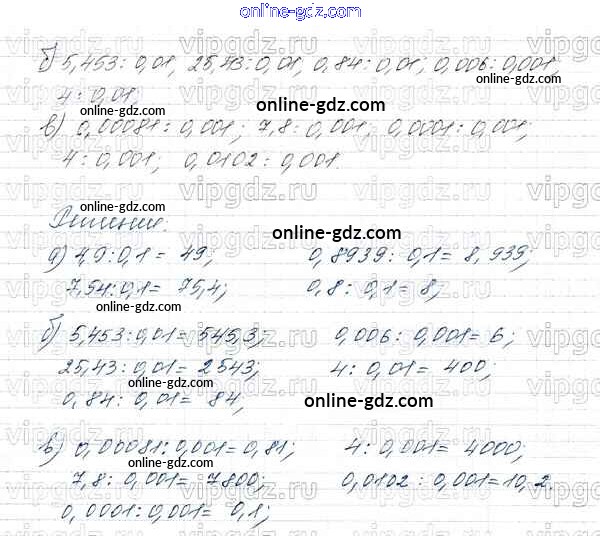 online-gdz.com
б) 5,453 : 0,01, 25,43 : 0,01, 0,84 : 0,01; 0,006 : 0,001
4 : 0,01;
online-gdz.com
online-gdz.com
в) 0,00081 : 0,001; 7,8 : 0,001; 0,0001 : 0,001;
4 : 0,001; 0,0102 : 0,001.
online-gdz.com
online-gdz.com
Решение.
online-gdz.com
а) 4,9 : 0,1 = 49; 0,8939 : 0,1 = 8,939;
7,54 : 0,1 = 75,4; 0,8 : 0,1 = 8;
online-gdz.com
online-gdz.com
б) 5,453 : 0,01 = 545,3; 0,006 : 0,001 = 6;
25,43 : 0,01 = 2543; 4 : 0,01 = 400;
online-gdz.com
0,84 : 0,01 = 84,
online-gdz.com
в) 0,00081 : 0,001 = 0,81; 4 : 0,001 = 4000;
online-gdz.com
7,8 : 0,001 = 7800; 0,0102 : 0,001 = 10,2
online-gdz.com
online-gdz.com
0,0001 : 0,001 = 0,1;
vipgdz.ru